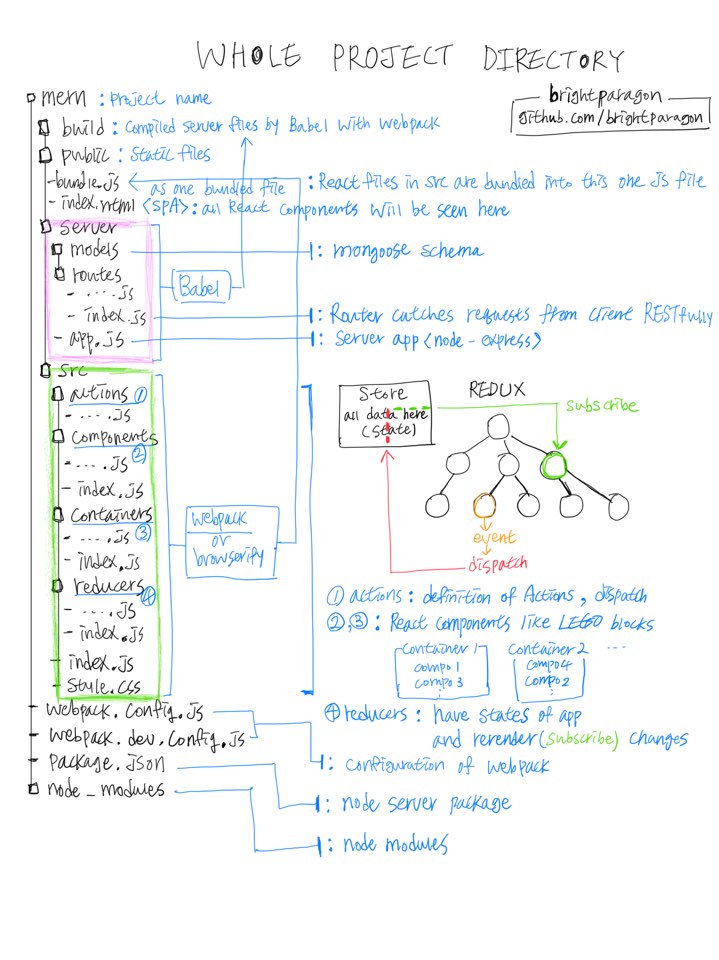 WHOLE PROJECT DIRECTORY
brightparagon
github.com/brightparagon
mern : project name
build : compiled server files by Babel with webpack
public : static files
- bundle.js as one bundled file : React files in src are bundled into this one JS file
- index.html <SPA> : all React components will be seen here
server
models : mongoose schema
routes
Babel
- ....js
- index.js : Router catches requests from client RESTfully
- app.js : server app <node-express>
src
actions ①
- ....js
components
②
- ....js
- index.js
containers
- ....js ③
- index.js
reducers
④
- ....js
- index.js
- index.js
- style.css
webpack
or
browserify
Store
all data here
(state)
REDUX
subscribe
event
dispatch
① actions : definition of Actions, dispatch
②,③ : React components like LEGO blocks
container 1
compo 1
compo 3
:
container 2
compo 4
compo 2
:
...
④ reducers : have states of app
and rerender(subscribe) changes
- webpack.config.js
- webpack.dev.config.js
: configuration of webpack
- package.json
: node server package
node_modules
: node modules